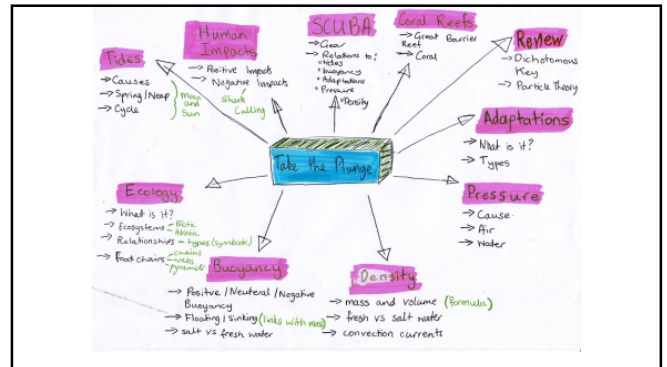 Take the Plunge
Tides
→ Causes
→ Spring/Neap
→ Cycle
Moon
and
Sun
Human
Impacts
→ Positive Impacts
→ Negative Impacts
Shark
Culling
SCUBA
→ Gear
→ Relations to:
• tides
• buoyancy
• Adaptations
• Pressure
• Density
Coral Reefs
→ Great Barrier
Reef
→ Coral
Review
→ Dichotomous
Key
→ Particle Theory
Adaptations
→ What is it?
→ Types
Pressure
→ Cause
→ Air
→ Water
Density
→ mass and volume (formula)
→ fresh vs salt water
→ convection currents
Buoyancy
→ Positve/Neuteral/Negative
Buoyancy
→ Floating/Sinking (links with mass)
→ salt vs fresh water
Ecology
→ What is it?
→ Ecosystems - Biotic
- Abiotic
→ Relationships - types (symbiotic)
→ Food chains - chains
- webs
- pyramids